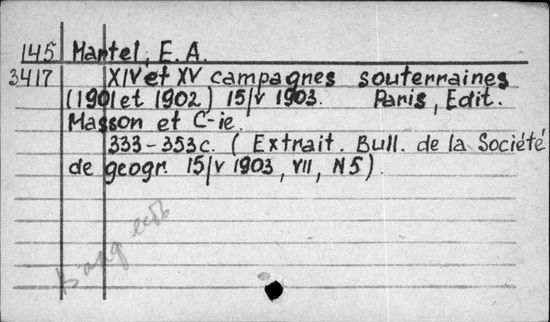 145 Martel, E. A.
3417 XIV et XV campagnes souterraines
(1901 et 1902) 15/V 1903. Paris, Edit.
Masson et C-ie.
333-353c. (Extrait. Bull. de la Société
de geogr. 15/V 1903, VII, N5).